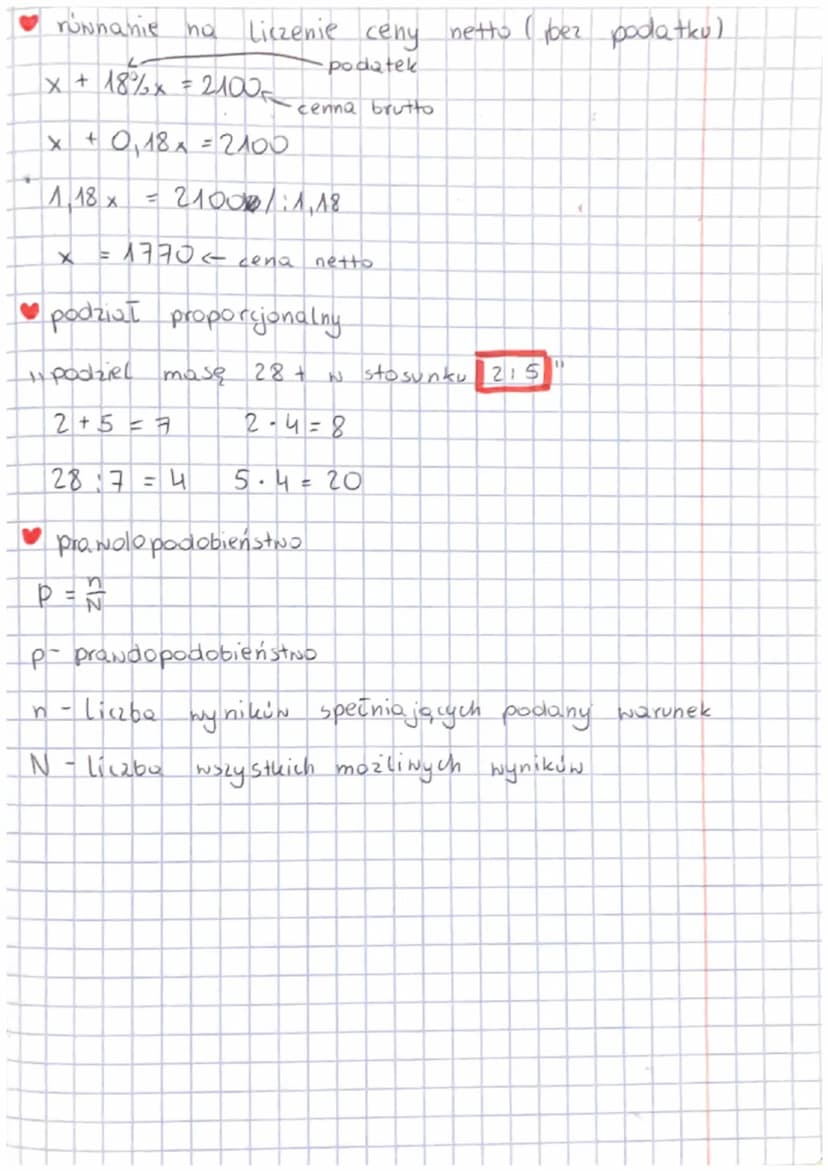 równanie na liczenie ceny netto (bez podatku)
podatek
x + 18%x = 2100
cenna brutto
x + 0,18x = 2100
1,18x = 2100 /:1,18
x = 1770 ← cena netto
podział proporcjonalny
"podziel masę 28t w stosunku 2:5"
2 + 5 = 7 2 · 4 = 8
28 : 7 = 4 5 · 4 = 20
prawdopodobieństwo
p = n/N
p - prawdopodobieństwo
n - liczba wyników spełniających podany warunek
N - liczba wszystkich możliwych wyników